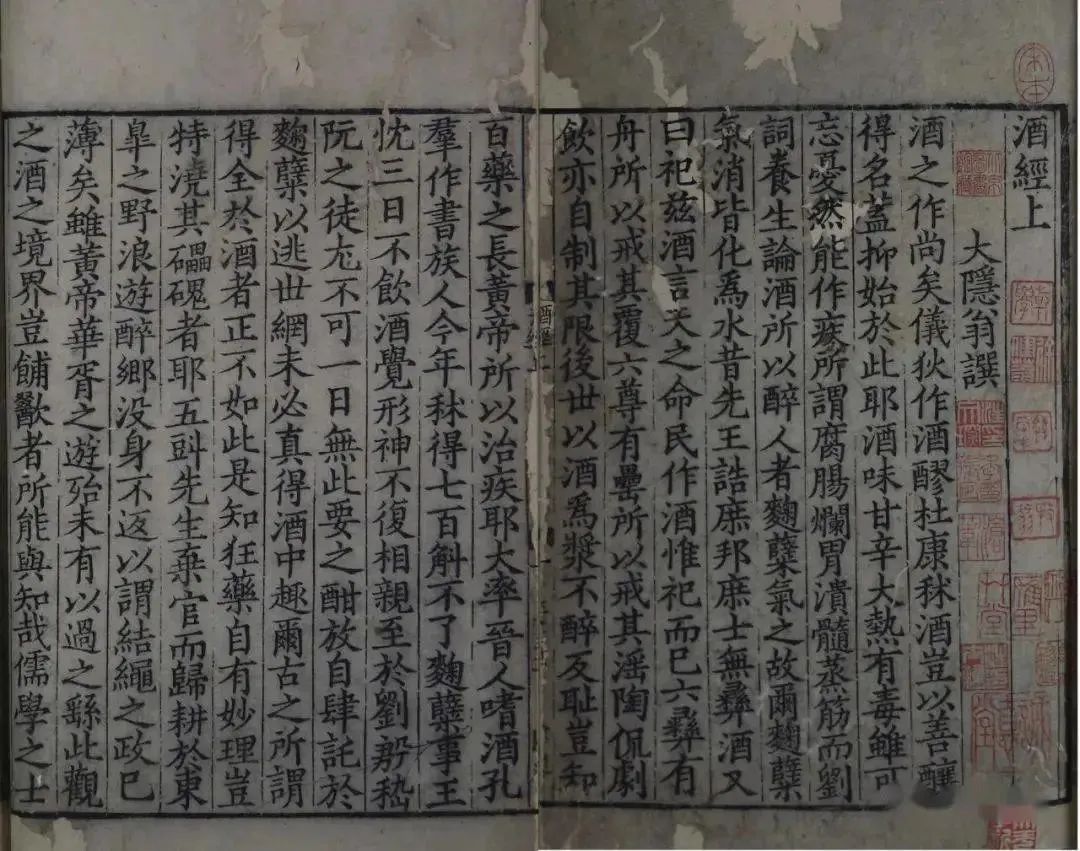 酒經上
大隱翁譔
酒之作尚矣儀狄作酒醪杜康秫酒豈以善釀
得名蓋抑始於此耶酒味甘辛大熱有毒雖可
忘憂然能作疾所謂腐腸爛胃潰髓蒸筋而劉
詞養生論酒所以醉人者麴蘖氣之故爾麴蘖
氣消皆化爲水昔先王誥庶邦庶士無彝酒又
曰祀兹酒言天之命民作酒惟祀而已六彝有
舟所以戒其覆六尊有罍所以戒其淫陶侃劇
飲亦自制其限後世以酒爲漿不醉反耻豈知
百藥之長黃帝所以治疾耶大率晉人嗜酒孔
羣作書族人今年秫得七百斛不了麴蘖事王
忱三日不飲酒覺形神不復相親至於劉殷嵇
阮之徒尤不可一日無此要之酣放自肆託於
麴蘖以逃世網未必真得酒中趣爾古之所謂
得全於酒者正不如此是知狂藥自有妙理豈
特澆其礧磈者耶五㪷先生棄官而歸耕於東
皐之野浪遊醉鄉没身不返以謂結繩之政已
薄矣雖黃帝華胥之遊殆未有以過之繇此觀
之酒之境界豈餔歠者所能與知哉儒學之士